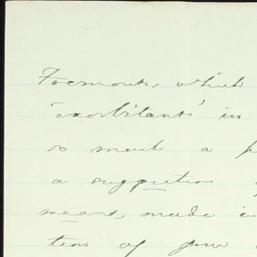 Fremont, which
'exorbitant' in
so much a
a suggestion
means, made in
tion of your